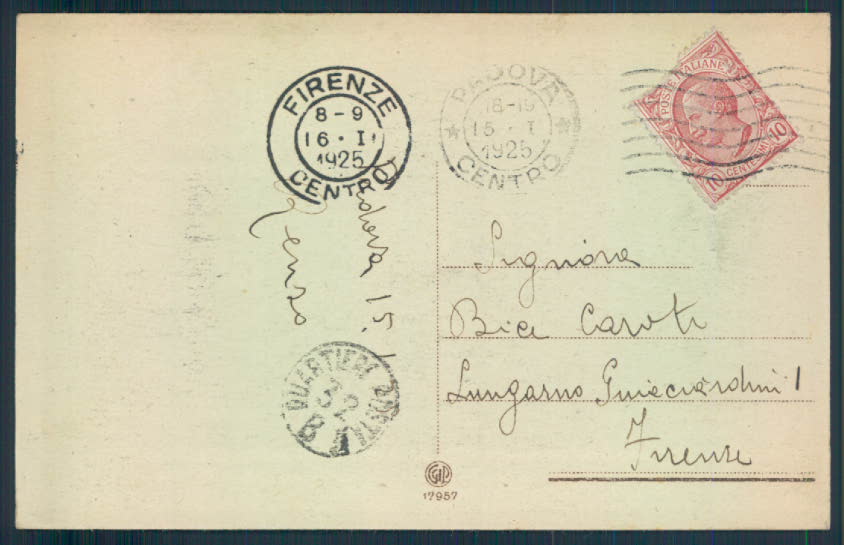 FIRENZE
8-9
16·I
1925
CENTRO
PADOVA
18-19
15·I
1925
CENTRO
POSTE ITALIANE
10
10
CENTESIMI
Padova 15.1
Renzo
Signora
Bice Caroti
Lungarno Guicciardini 1
Firenze
QUARTIERE POSTALE
32
B
17957